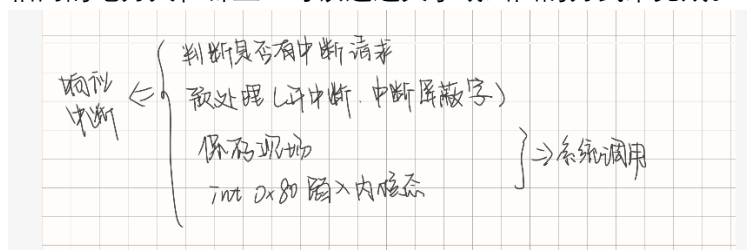 响应
中断
判断是否有中断请求
预处理(开中断.中断屏蔽字)
保存现场
int 0x80 陷入内核态
⇒系统调用